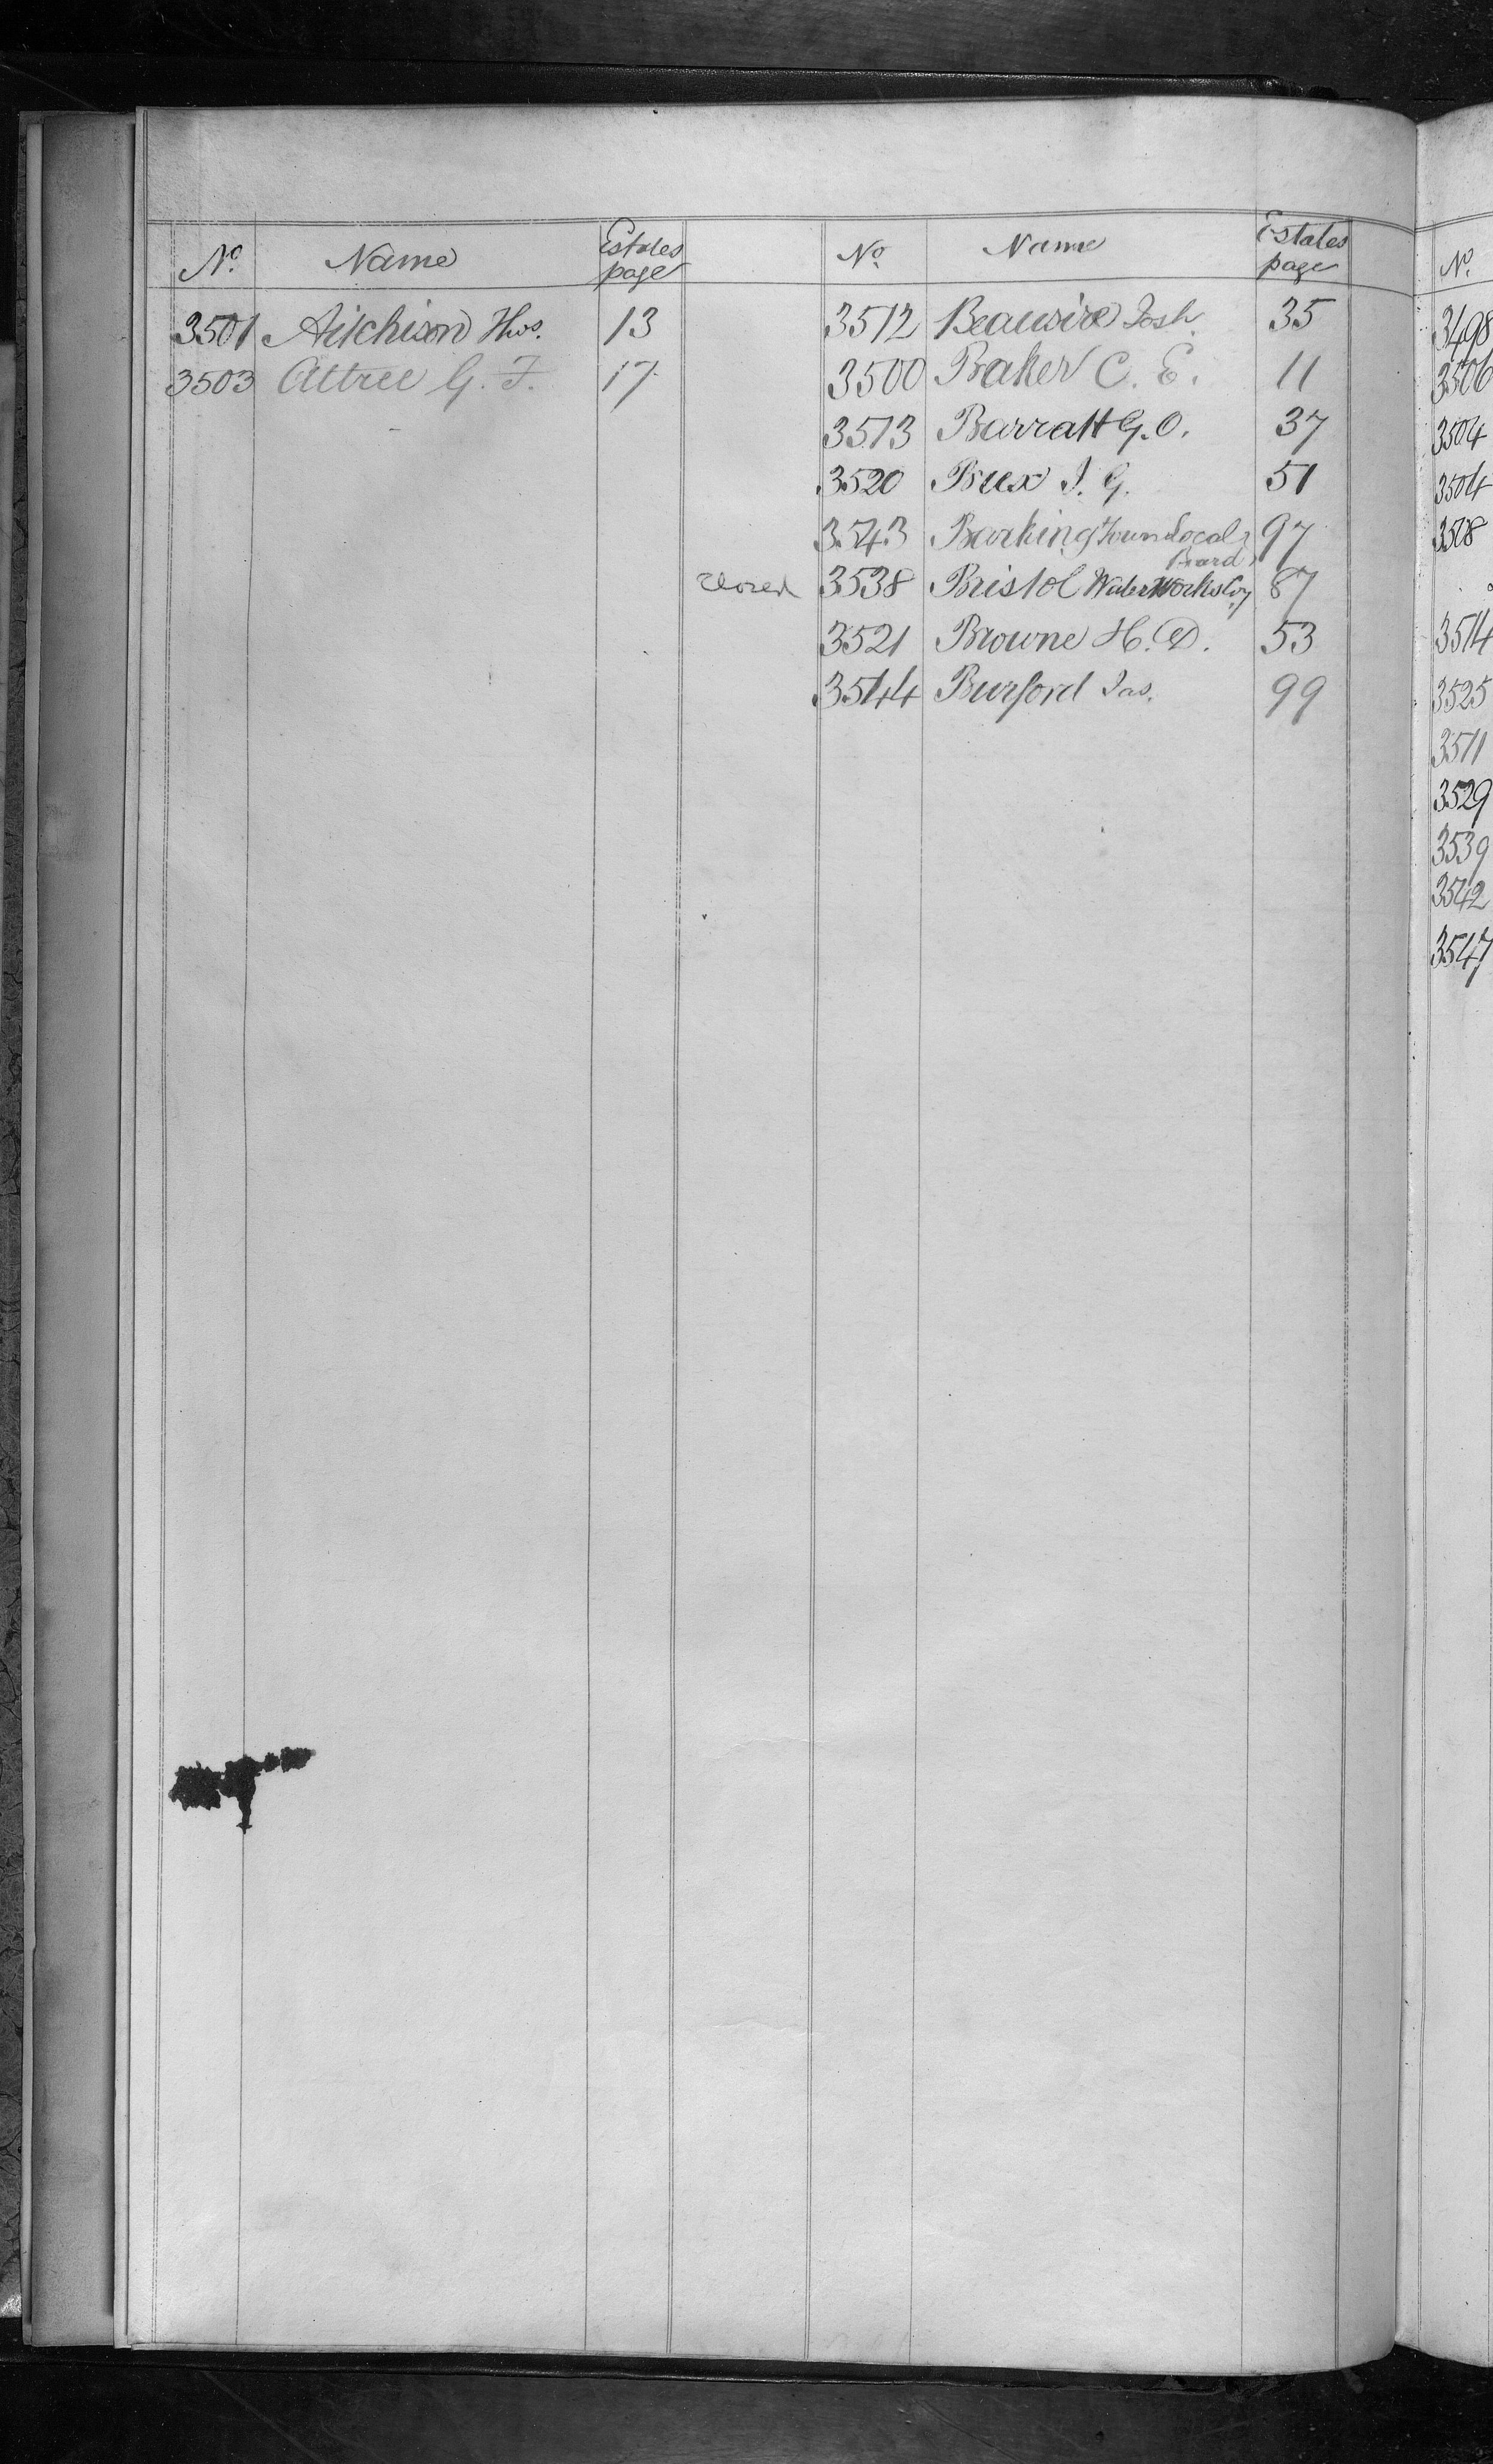 No. Name Estates page
3501 Aitchison Thos. 13
3503 Attree G. F. 17
No. Name Estates page
3512 Beausire Josh. 35
3500 Baker C. E. 11
3513 Barratt G. O. 37
3520 Brex J. G. 51
3543 Barking Town Local 97
Board
closed 3538 Bristol Water Works Coy 87
3521 Browne H. D. 53
3544 Burford Jas. 99
No.
3498
3506
3504
3504
3508
3514
3525
3511
3529
3539
3542
3547